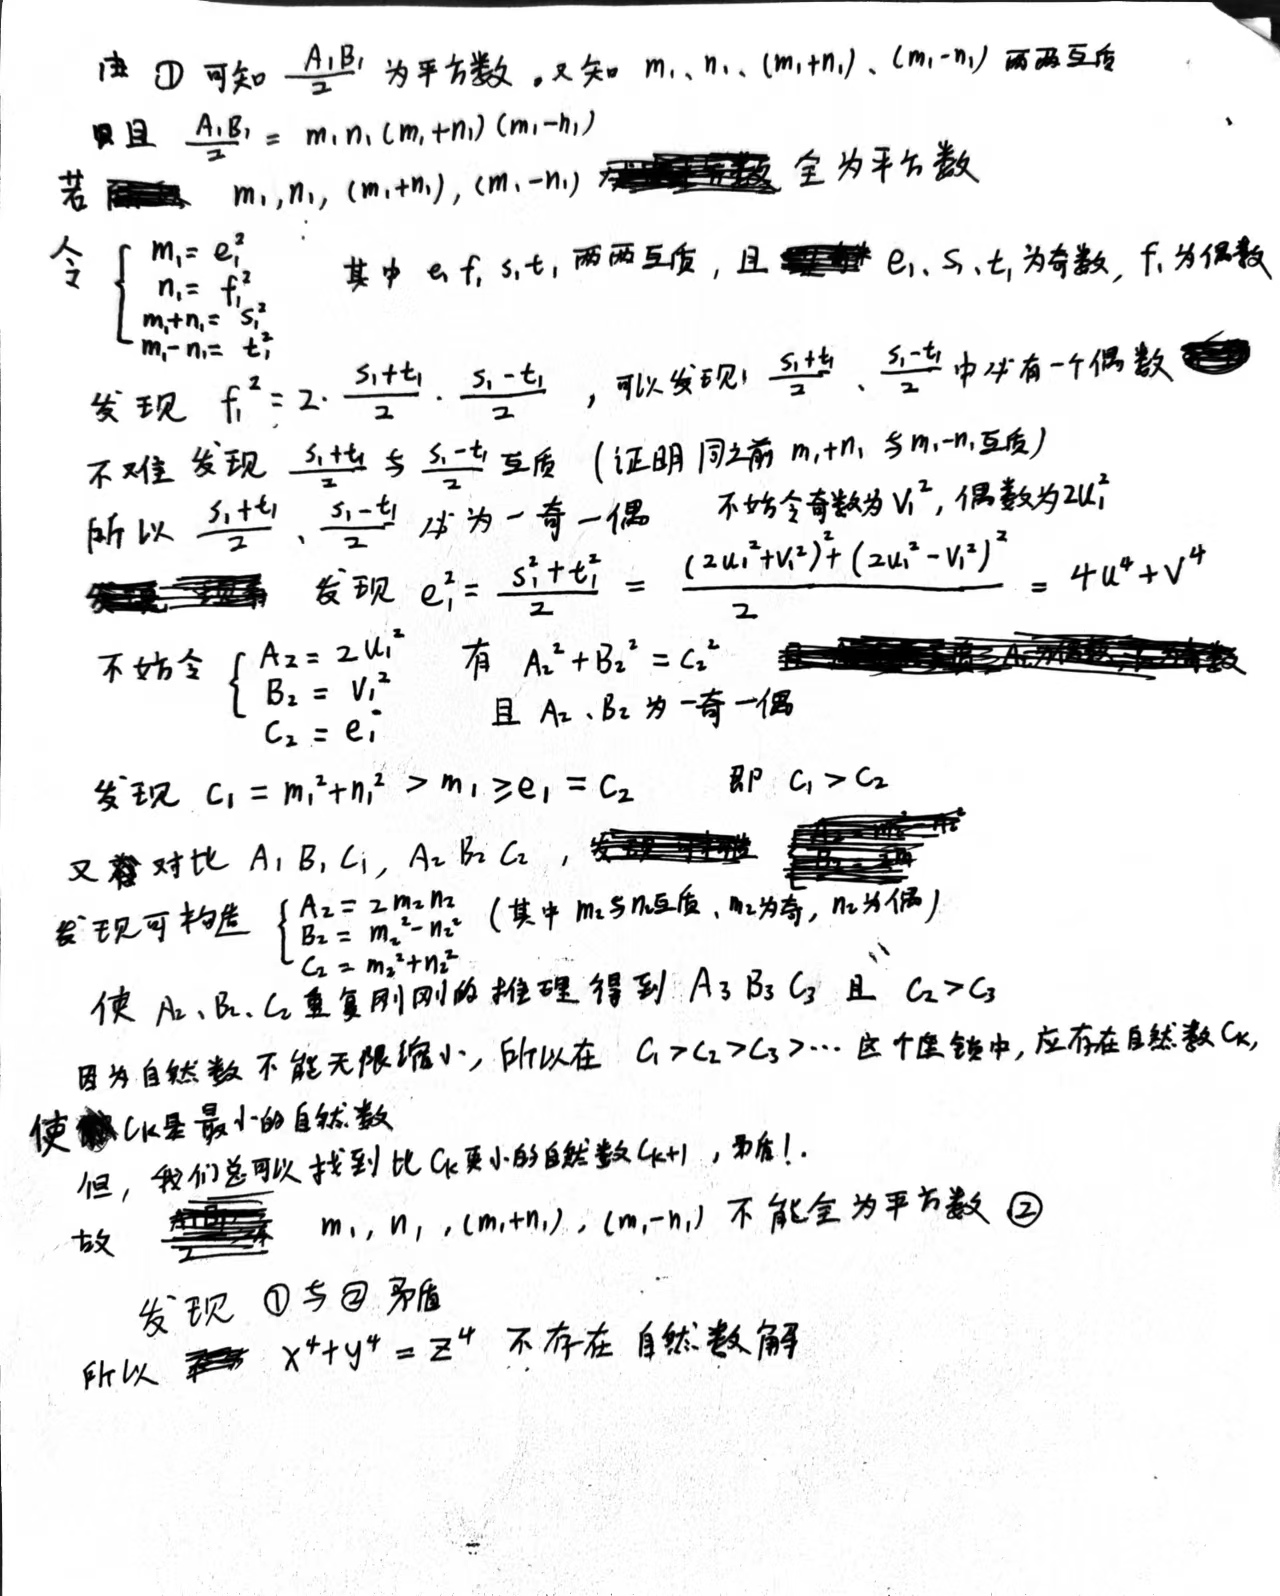 由 ① 可知 A₁B₁/2 为平方数。又知 m₁、n₁、(m₁+n₁)、(m₁-n₁) 两两互质
且 A₁B₁/2 = m₁n₁(m₁+n₁)(m₁-n₁)
若 m₁,n₁, (m₁+n₁), (m₁-n₁) 全为平方数
令 { m₁= e₁² 其中 e₁ f₁ s₁ t₁ 两两互质, 且 e₁、s₁、t₁ 为奇数, f₁ 为偶数
n₁= f₁²
m₁+n₁= s₁²
m₁-n₁= t₁²
发现 f₁² = 2· (s₁+t₁)/2 · (s₁-t₁)/2 , 可以发现 (s₁+t₁)/2 、 (s₁-t₁)/2 中必有一个偶数
不难发现 (s₁+t₁)/2 与 (s₁-t₁)/2 互质 (证明同之前 m₁+n₁ 与 m₁-n₁互质)
所以 (s₁+t₁)/2 、 (s₁-t₁)/2 必为一奇一偶 不妨令奇数为V₁², 偶数为2u₁²
发现 e₁² = (s₁²+t₁²)/2 = ((2u₁²+V₁²)²+(2u₁²-V₁²)²)/2 = 4u⁴+V⁴
不妨令 { A₂= 2u₁² 有 A₂²+B₂²=C₂²
B₂ = V₁² 且 A₂、B₂ 为一奇一偶
C₂ = e₁
发现 C₁ = m₁²+n₁² > m₁ ≥ e₁ = C₂ 即 C₁ > C₂
又 对比 A₁ B₁ C₁, A₂ B₂ C₂ ,
发现可构造 { A₂= 2m₂n₂ (其中 m₂与n₂互质、m₂为奇, n₂为偶)
B₂= m₂²-n₂²
C₂= m₂²+n₂²
使 A₂、B₂、C₂ 重复刚刚的推理得到 A₃ B₃ C₃ 且 C₂>C₃
因为自然数不能无限缩小, 所以在 C₁>C₂>C₃>… 这个链锁中, 应存在自然数Cₖ,
使 Cₖ是最小的自然数
但, 我们总可以找到比Cₖ更小的自然数Cₖ₊₁ , 矛盾!.
故 m₁, n₁ , (m₁+n₁), (m₁-n₁) 不能全为平方数 ②
发现 ①与② 矛盾
所以 x⁴+y⁴=z⁴ 不存在自然数解